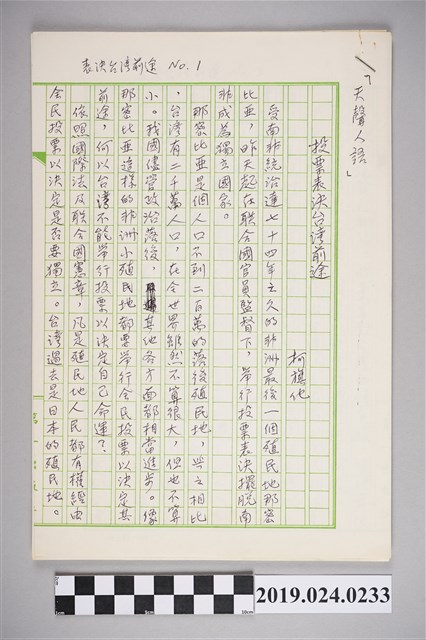 表決台灣前途 No.1
「天聲人語」
投票表決台灣前途
柯旗化
受南非統治達七十四年之久的非洲最後一個殖民地那密
比亞，昨天起在聯合國官員監督下，舉行投票表決擺脫南
非成為獨立國家。
那密比亞是個人口不到二百萬的落後殖民地，與之相比
，台灣有二千萬人口，在全世界雖然不算很大，但也不算
小。我國儘管政治落後，其他各方面都相當進步。像
那密比亞這樣的非洲小殖民地都要舉行全民投票以決定其
前途，何以台灣不能舉行投票以決定自己命運？
依照國際法及聯合國憲章，凡是殖民地人民都有權經由
全民投票以決定是否要獨立。台灣過去是日本的殖民地。
1cm 5cm 10cm
2019.024.0233